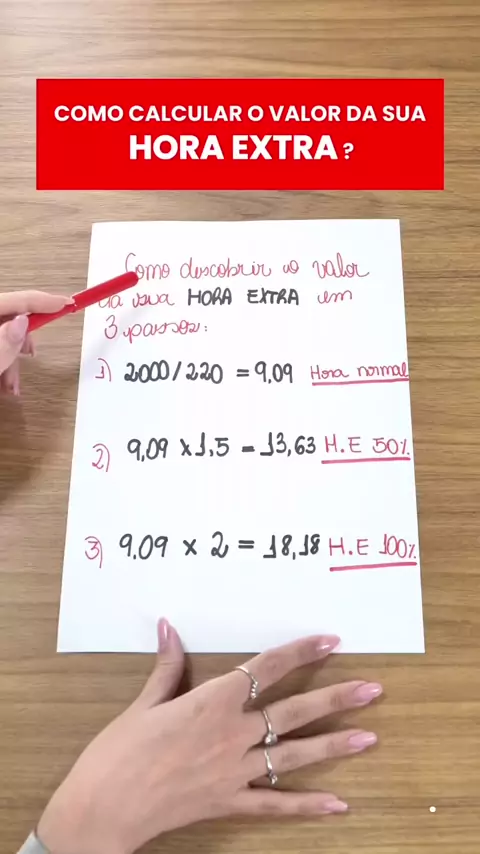 COMO CALCULAR O VALOR DA SUA
HORA EXTRA ?
Como descobrir o valor
da sua HORA EXTRA em
3 passos:
1) 2000/220 = 9,09 Hora normal
2) 9,09 x 1,5 = 13,63 H.E 50%
3) 9,09 x 2 = 18,18 H.E 100%